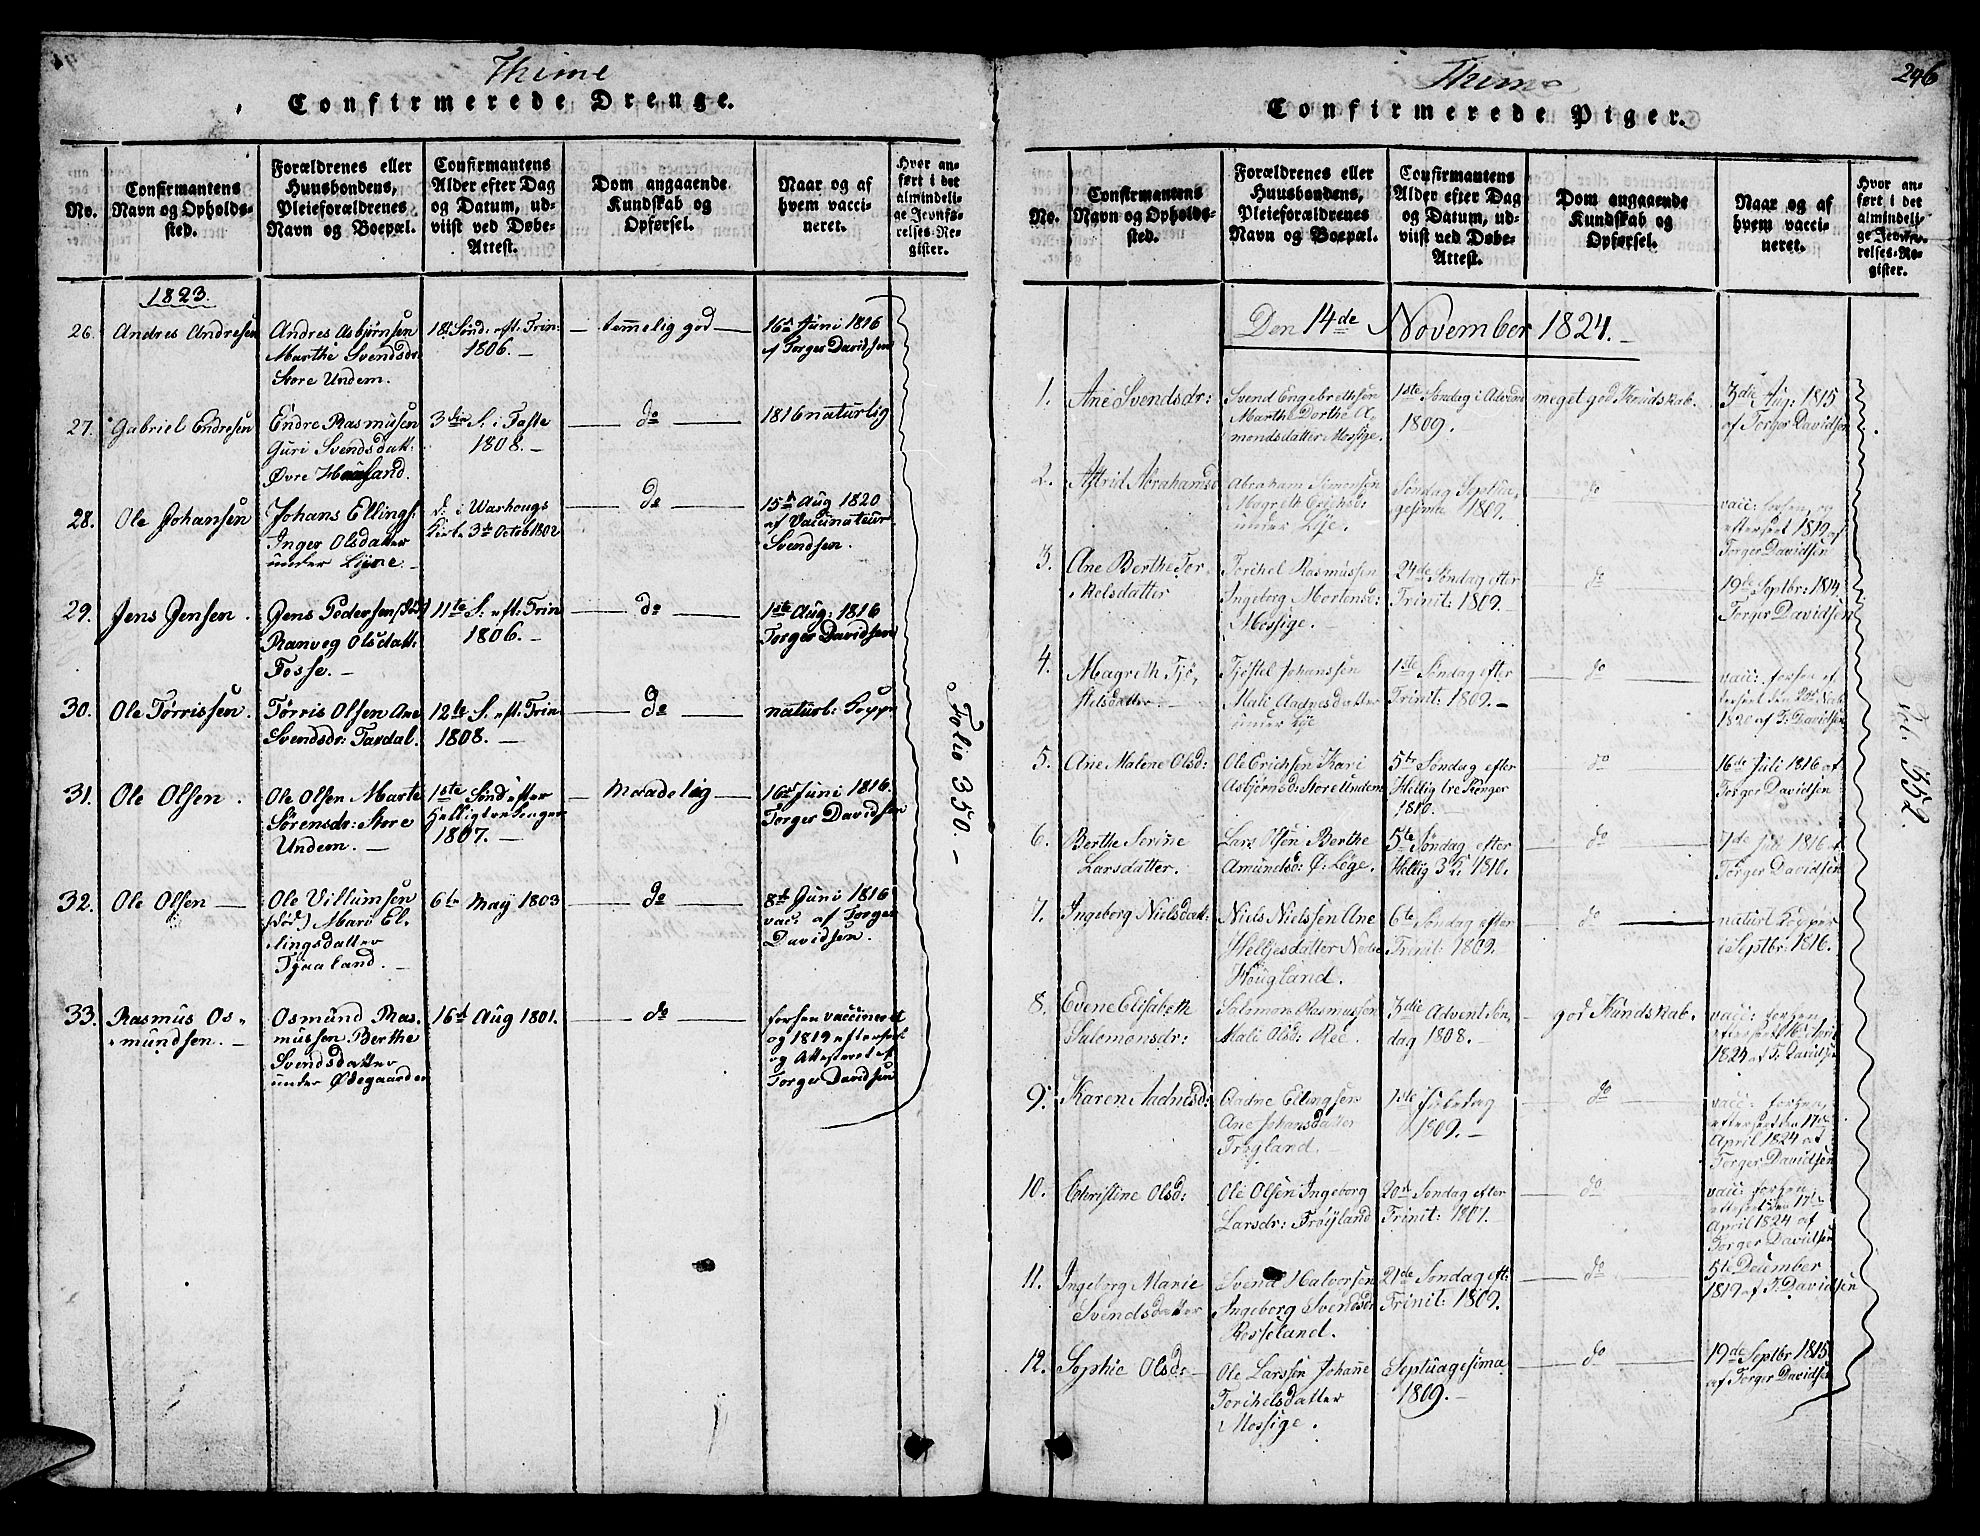 Thime
Confirmerede Drenge.
No.
Confirmantens
Navn og Opholds-
sted.
Forældrenes eller
Huusbondens,
Pleieforældrenes
Navn og Boepæl.
Confirmantens
Alder efter Dag
og Datum, ud-
viist ved Døbe-
Attest.
Dom angaaende
Kundskab og
Opførsel.
Naar og af
hvem vacci-
neret.
Hvor an-
ført i det
almindeli-
ge Jevnfø-
relses-Re-
gister.
1823.
26. Andres Andresen
Andres Asbjørnsen
Marthe Svendsdr
Store Undem.
18de Sønd: eft. Trin:
1806. —
— temmelig god —
16de Juni 1816
af Torger Davidsen
27. Gabriel Endresen
Endre Rasmusen
Guri Svendsdatt:
Øvre Haaland.
3die S. i Faste
1808. —
— do —
1816 naturlig
28. Ole Johansen
Johans Ellings:
Inger Olsdatter
under Lyne. —
d. i Warhougs
Kirke 3de Octob 1802
— do —
15de Aug 1820
af Vaccinateur
Svendsen.
29. Jens Jensen.
Jens Pedersen (død)
Ranveg Olsdatt:
Fosse. —
11te S. eft. Trin
1806. —
— do —
1ste Aug: 1816
Torger Davidsen
30. Ole Tørrissen.
Tørris Olsen Ane
Svendsdr: Tardal.
12te S. eft. Trin
1808. —
— do —
naturl: Kopper
31. Ole Olsen.
Ole Olsen Marte
Sørensdr: Store
Undem. —
1ste Sønd efter
Helligtre Konger
1807. —
— maadelig —
16de Juni 1816.
Torger Davidsen
32. Ole Olsen —
Ole Villumsen
(død) Mari El-
lingsdatter
Tjaaland. —
6te May 1803
— do —
8de Juni 1816
vac: af Torger
Davidsen.
33. Rasmus Os-
mundsen. —
Osmund Ras-
mussen Berthe
Svendsdatter
under Ødegaarden
16de Aug 1801.
— do —
forhen vaccineret
og 1819 efterseet
og Attesteret af
Torger Davidsen
Folio 350. —
Thime
246
Confirmerede Piger.
No.
Confirmantens
Navn og Opholds-
sted.
Forældrenes eller
Huusbondens,
Pleieforældrenes
Navn og Boepæl.
Confirmantens
Alder efter Dag
og Datum, ud-
viist ved Døbe-
Attest.
Dom angaaende
Kundskab og
Opførsel.
Naar og af
hvem vacci-
neret.
Hvor an-
ført i det
almindeli-
ge Jevnfø-
relses-Re-
gister.
Den 14de November 1824. —
1. Ane Svendsdr:
Svend Engebrethsen
Marthe Dorthe A-
mondsdatter Mossige.
1ste Søndag i Advent
1809. —
meget god Kundskab.
3die Aug: 1815
af Torger Davidsen
2. Astrid Abrahamsd
Abraham Simonsen
Magreth Erichsd:
under Lye.
Søndag Septua-
gesima 1809.
— do —
vacc: forhen, og
efterseet 1819 af
Torger Davidsen
3. Ane Berthe Tor-
kelsdatter
Torkel Rasmussen
Ingeborg Mortensd:
Mossige. —
24de Søndag efter
Trinit: 1809. —
— do —
19de Septbr: 1814
Torger Davidsen
4. Magreth Tjø-
stelsdatter —
Tjøstel Johanssen
Mali Aadnesdatter
under Lye
1ste Søndag efter
Trinit: 1809. —
— do —
vacc: forhen ef
terseet den 20de
1820 af T. Davidsen
5. Ane Malene Olsd:
Ole Erichsen Kari
Asbjørnsd: Store Undem
5te Søndag efter
Hellig tre Konger
1810. —
— do —
16de Juli 1816 af
Torger Davidsen
6. Berthe Serine
Larsdatter.
Lars Olsen Berthe
Amundsd: Ø: Løge.
5te Søndag efter
Hellig 3 K. 1810.
— do —
7de Juli 1816 af
Torger Davidsen
7. Ingeborg Nielsdatt:
Niels Nielssen Ane
Helljesdatter Nedre
Hougland.
6te Søndag efter
Trinit: 1809. —
— do —
naturl Kopper
i Septbr: 1816.
8. Edene Elisabeth
Salomonsdr:
Salomon Rasmussen
Mali Olsd: Ree.
3die Advent Søn-
dag 1808. —
— god Kundskab.
vacc: forhen
efterseet
1824 af T. Davidsen
9. Karen Aadnesd:
Aadne Ellingsen
Ane Johansdatter
Frøyland. —
1ste Juledag
1809. —
— do —
vacc: forhen,
efterseet den 17de
April 1824 af
Torger Davidsen
10. Christine Olsd:
Ole Olsen Ingeborg
Larsdr: Frøyland
20de Søndag efter
Trinit: 1807. —
— do —
vacc: forhen
efterseet den 17de
April 1824 af
Torger Davidsen
11. Ingeborg Marie
Svendsdatter
Svend Halvorsen
Ingeborg Svendsdr
Rosseland.
21de Søndag eft:
Trinit: 1809.
— do —
5te December
1819 af T. Davidsen
12. Sophie Olsd: —
Ole Larssen Johanne
Torchelsdatter
Mossige.
Septuagesima
1809. —
— do —
19de Septbr 1815
af Torger Davidsen
Fol. 352.